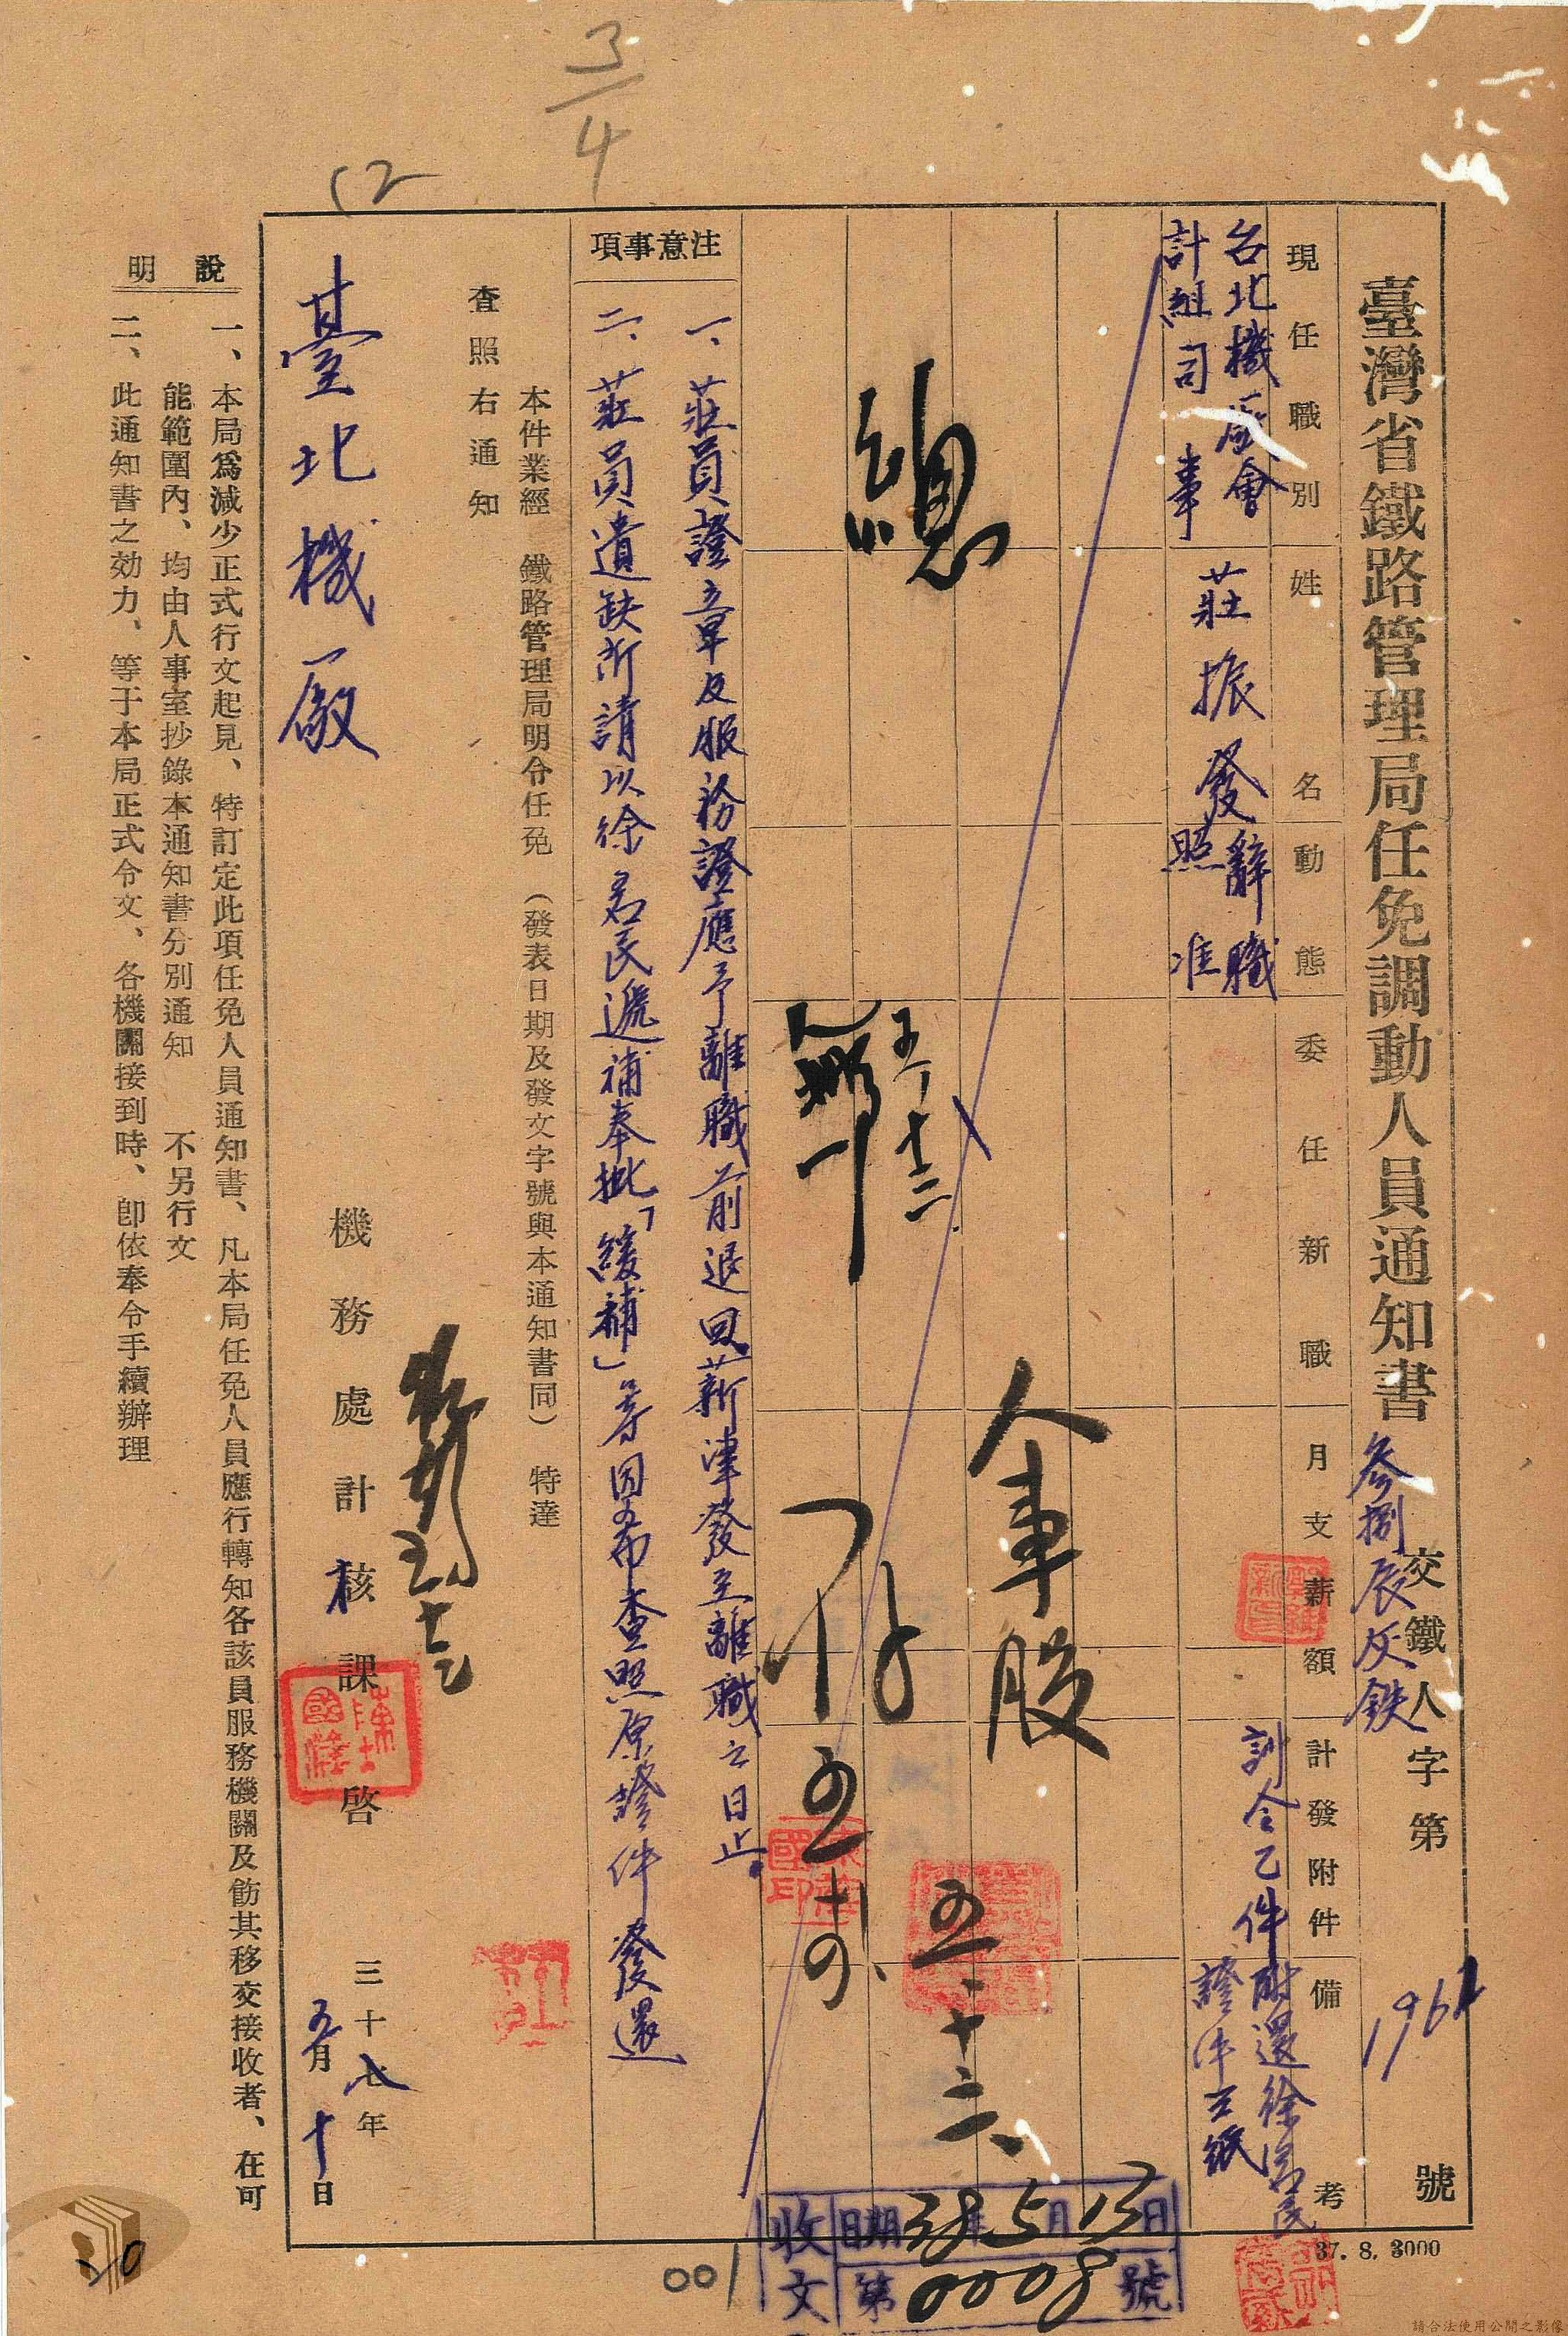 臺灣省鐵路管理局任免調動人員通知書
參捌辰灰鉄
交鐵人字第1961號
現任職別
姓名
動態
委任新職
月支薪額
計發附件
備考
台北機廠會
計組司事
莊振發
辭職
照准
訓令乙件
附還徐名民
證件三紙
總
五、十二
人事股
五、十三、
五十四、
注意事項
一、莊員證章及服務證應予離職前退回薪津發至離職之日止。
二、莊員遺缺所請以徐名民遞補奉批「緩補」等因希查照原證件發還
本件業經 鐵路管理局明令任免 (發表日期及發文字號與本通知書同) 特達
查照右通知
臺北機廠
機務處計核課啓
三十八年
五月十日
說明
一、本局爲減少正式行文起見、特訂定此項任免人員通知書、凡本局任免人員應行轉知各該員服務機關及飭其移交接收者、在可
能範圍內、均由人事室抄錄本通知書分別通知 不另行文
二、此通知書之効力、等于本局正式令文、各機關接到時、卽依奉令手續辦理
37. 8. 3000
收文
日期38年5月13日
第0008號
001
20
3/4
12
請合法使用公開之影像